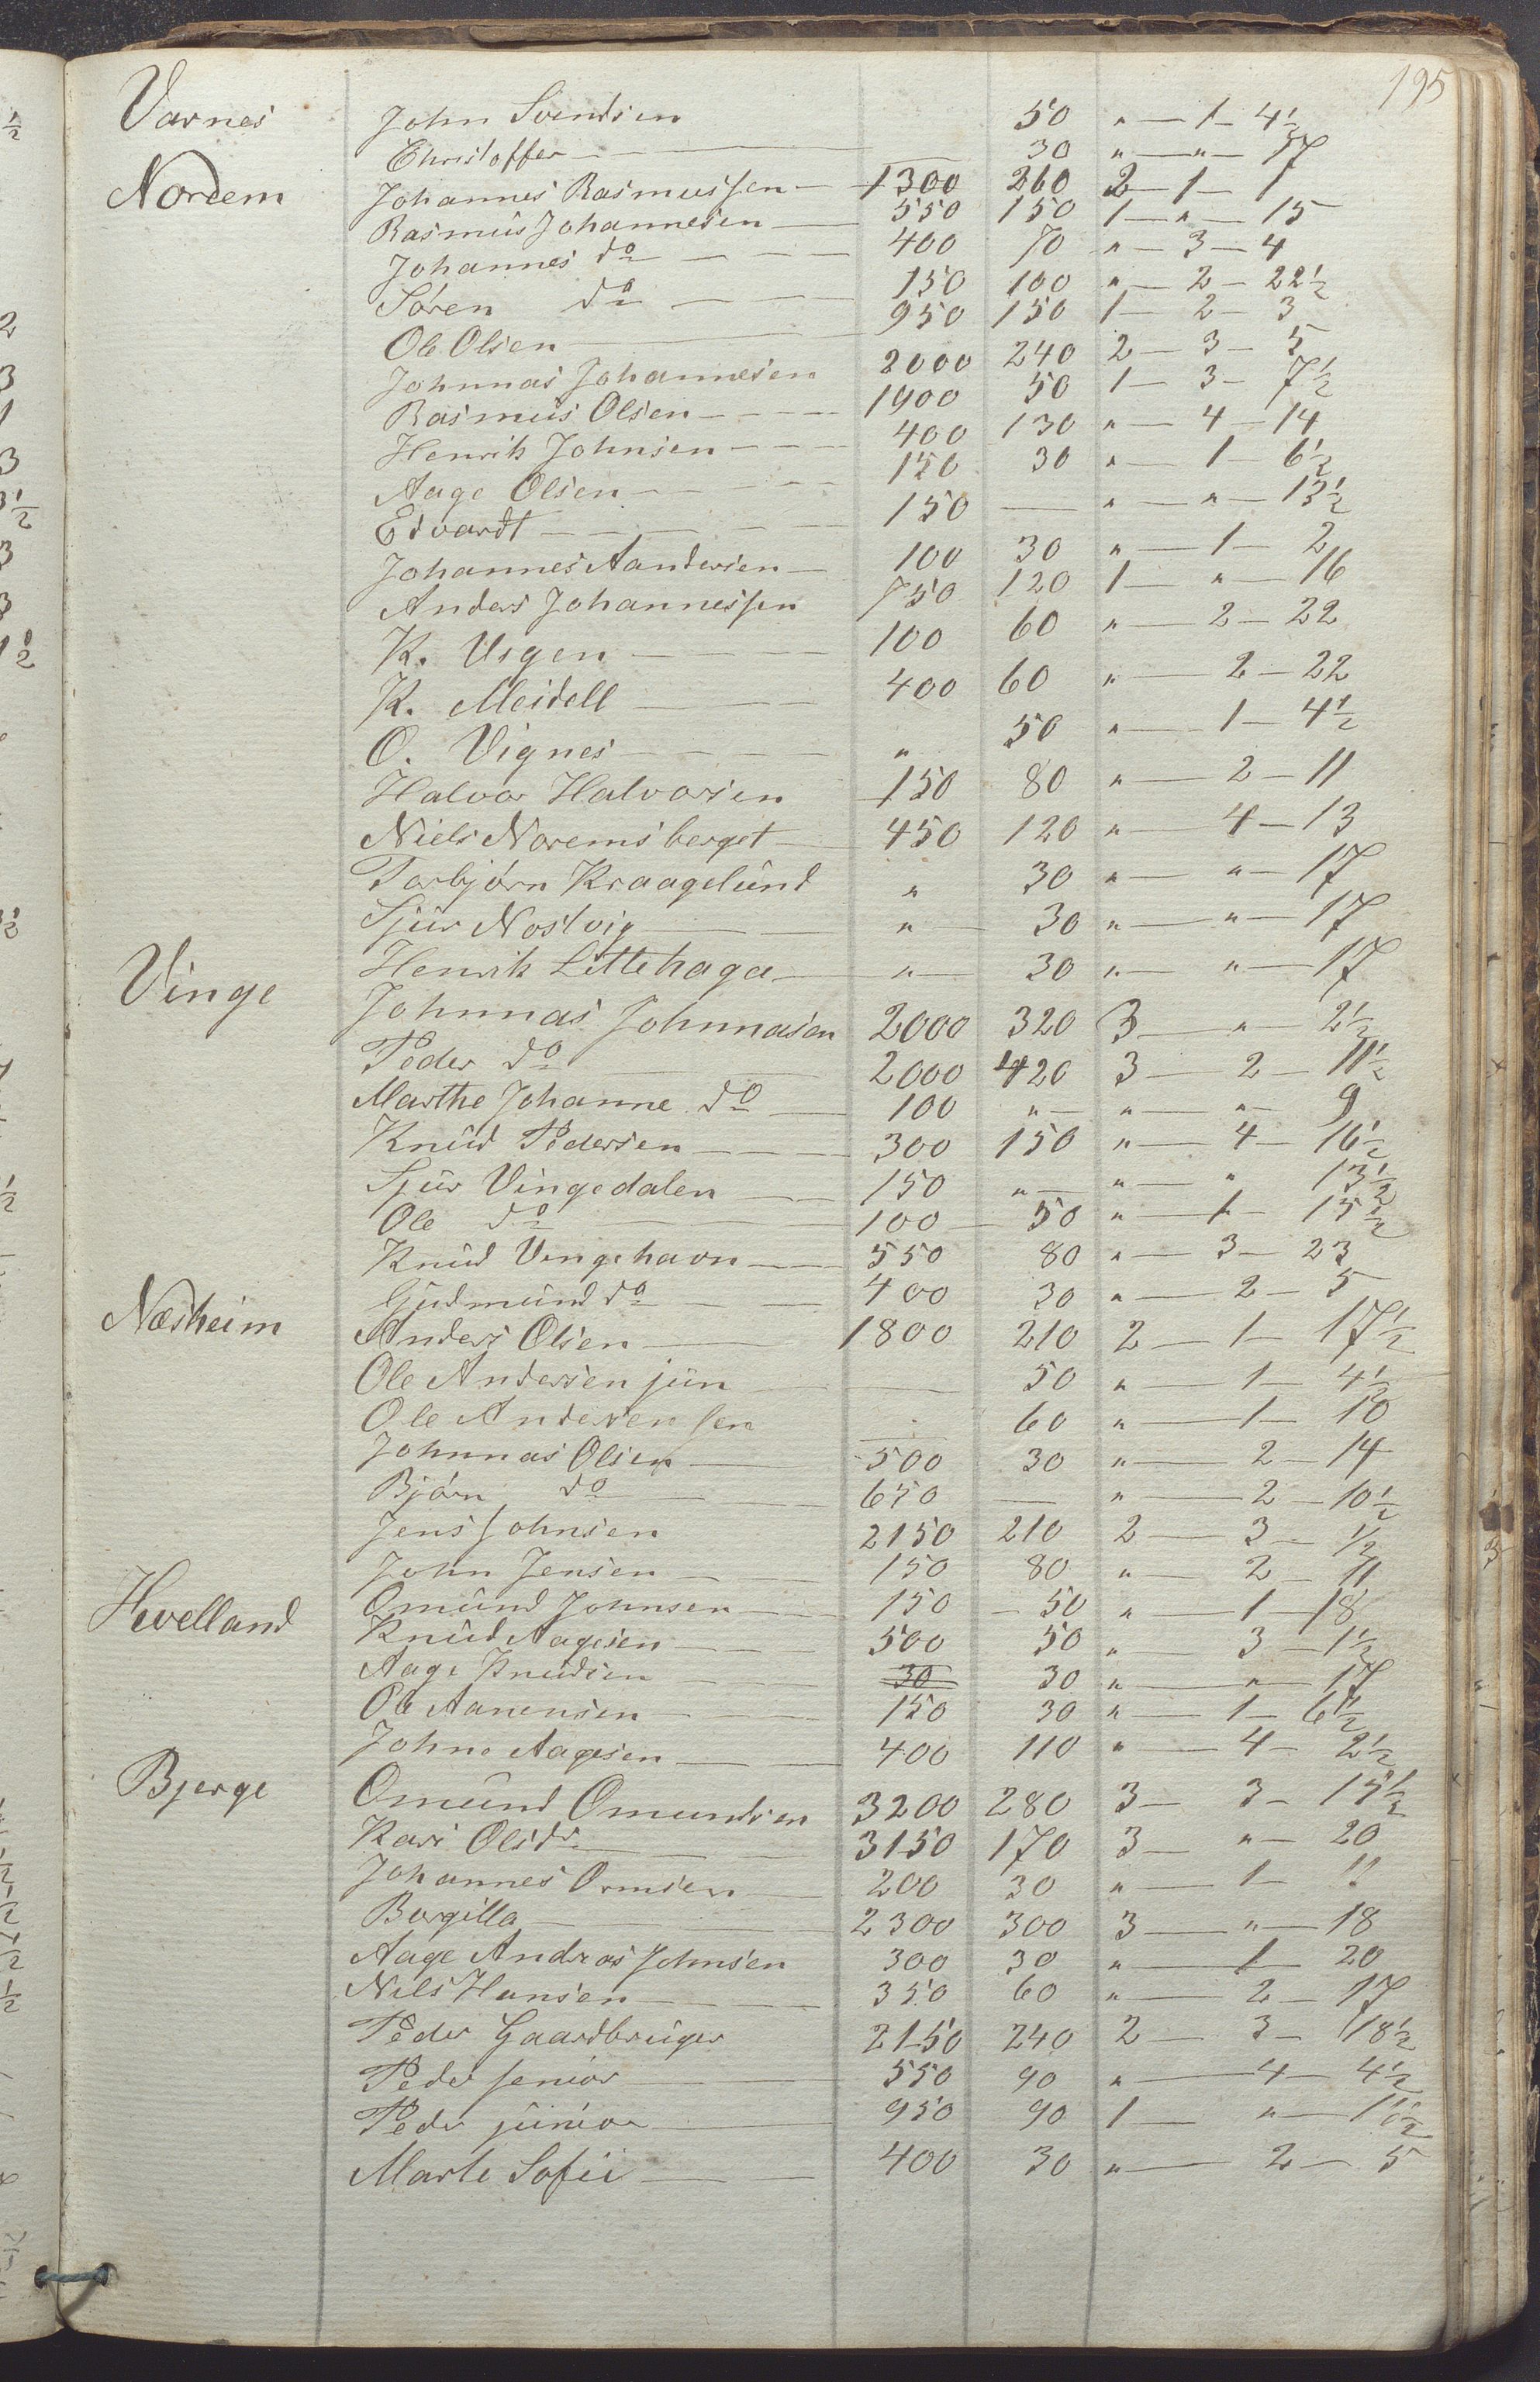 195
Varnes John Svendsen 50 " — 1 — 4½
Christoffer — 30 " — " — 17
Nordem Johannes Rasmussen — 1300 260 2 — 1 — 1
Rasmus Johannesen — 550 150 1 — " — 15
Johannes do — 400 70 " — 3 — 4
Søren do — 150 100 " — 2 — 22½
Ole Olsen — 950 150 1 — 2 — 3
Johnnas Johannesen 2000 240 2 — 3 — 5
Rasmus Olsen — 1900 50 1 — 3 — 7½
Henrik Johnsen — 400 130 " — 4 — 14
Aage Olsen — 150 30 " — 1 — 6½
Edvardt — 150 — " — " — 13½
Johannes Aandersen — 100 30 " — 1 — 2
Anders Johannessen 750 120 1 — " — 16
K. Usgen — 100 60 " — 2 — 22
K. Meidell — 400 60 " — 2 — 22
O. Vignes — " 50 " — 1 — 4½
Halvor Halvorsen 150 80 " — 2 — 11
Niels Noremsberget — 450 120 " — 4 — 13
Torbjørn Kraagelund " 30 " — " — 17
Sjur Nostvig — " — 30 " — " — 17
Henrik Littlehaga — " — 30 " — " — 17
Vinge Johnnas Johnnasen 2000 320 3 — " — 2½
Peder do — 2000 420 3 — 2 — 11½
Marthe Johanne do — 100 " — " — " — 9
Knud Pedersen — 300 150 " — 4 — 16½
Sjur Vingedalen — 150 " — " — " 13½
Ole do — 100 — 50 " — 1 — 15½
Knud Vingehavn — 550 80 " — 3 — 23
Gudmund do — 400 30 " — 2 — 5
Næsheim Anders Olsen — 1800 210 2 — 1 — 17½
Ole Andersen jun — 50 " — 1 — 4½
Ole Andersen sen — 60 " — 1 — 10
Johnnas Olsen — 500 30 " — 2 — 14
Bjørn do — 650 — " — 2 — 10½
Jens Johnsen 2150 210 2 — 3 — ½
John Jensen — 150 80 " — 2 — 11
Hevelland Omund Johnsen — 150 — 50 " — 1 — 18
Knud Aagesen — 500 50 " 3 — 1½
Aage Knudsen — 30 30 " — " — 17
Ole Aanensen — 150 30 " — 1 — 6½
Johno Aagesen — 400 110 " — 4 — 2½
Bjerge Omund Omundsen 3200 280 3 — 3 — 15½
Kari Olsdr — 3150 170 3 — " — 20
Johannes Ormsen — 200 30 " — 1 — 11
Borgilla — 2300 300 3 — " — 18
Aage Andreas Johnsen 300 30 " — 1 — 20
Nils Hansen — 350 60 " — 2 — 17
Peder Gaardbruger 2150 240 2 — 3 — 18½
Peder senior — 550 90 " — 4 — 4½
Peder junior — 950 90 1 — " —
Marte Sofie — 400 30 " — 2 — 5